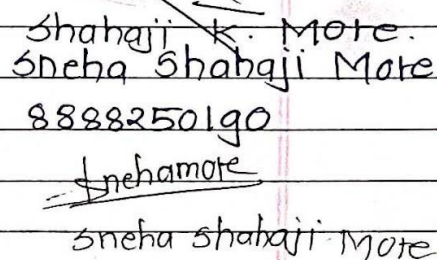 Shahaji K. More.
Sneha Shahaji More
8888250190
Snehamore
Sneha Shahaji More